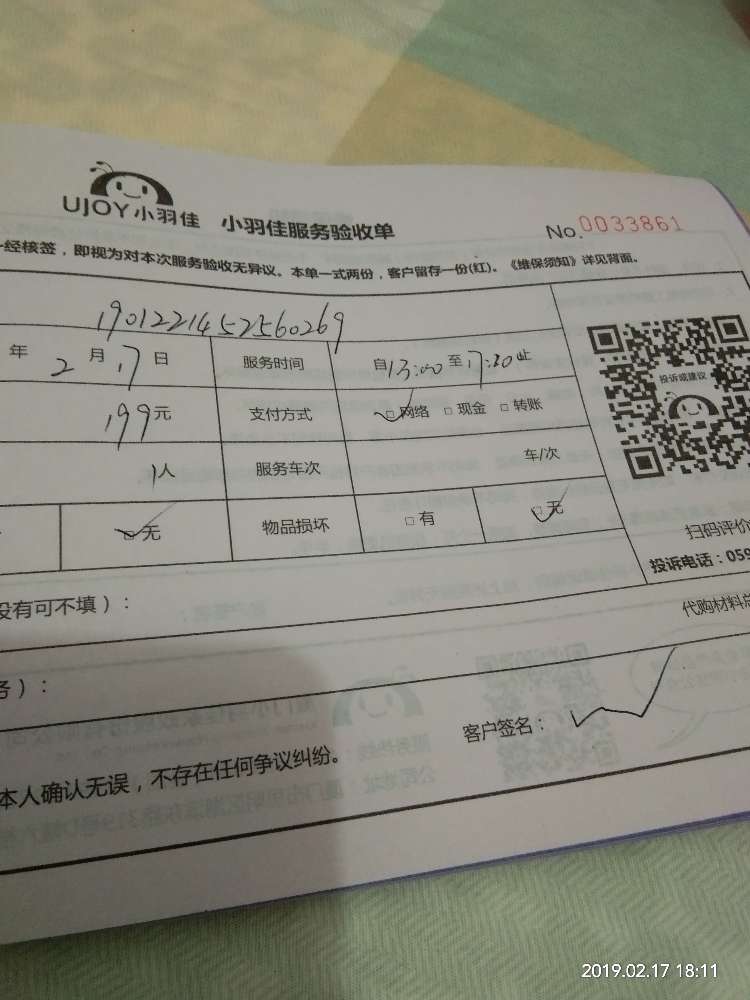 UJOY小羽佳 小羽佳服务验收单 No.0033861
经核签，即视为对本次服务验收无异议。本单一式两份，客户留存一份(红)。《维保须知》详见背面。
1901221452560269
年2月17日 服务时间 自13:00至17:20止
199元 支付方式 □网络 □现金 □转账
1人 服务车次 车/次
□无 物品损坏 □有 □无
投诉或建议
扫码评价
投诉电话：059
没有可不填）：
代购材料总
务）：
客户签名：
本人确认无误，不存在任何争议纠纷。
2019.02.17 18:11